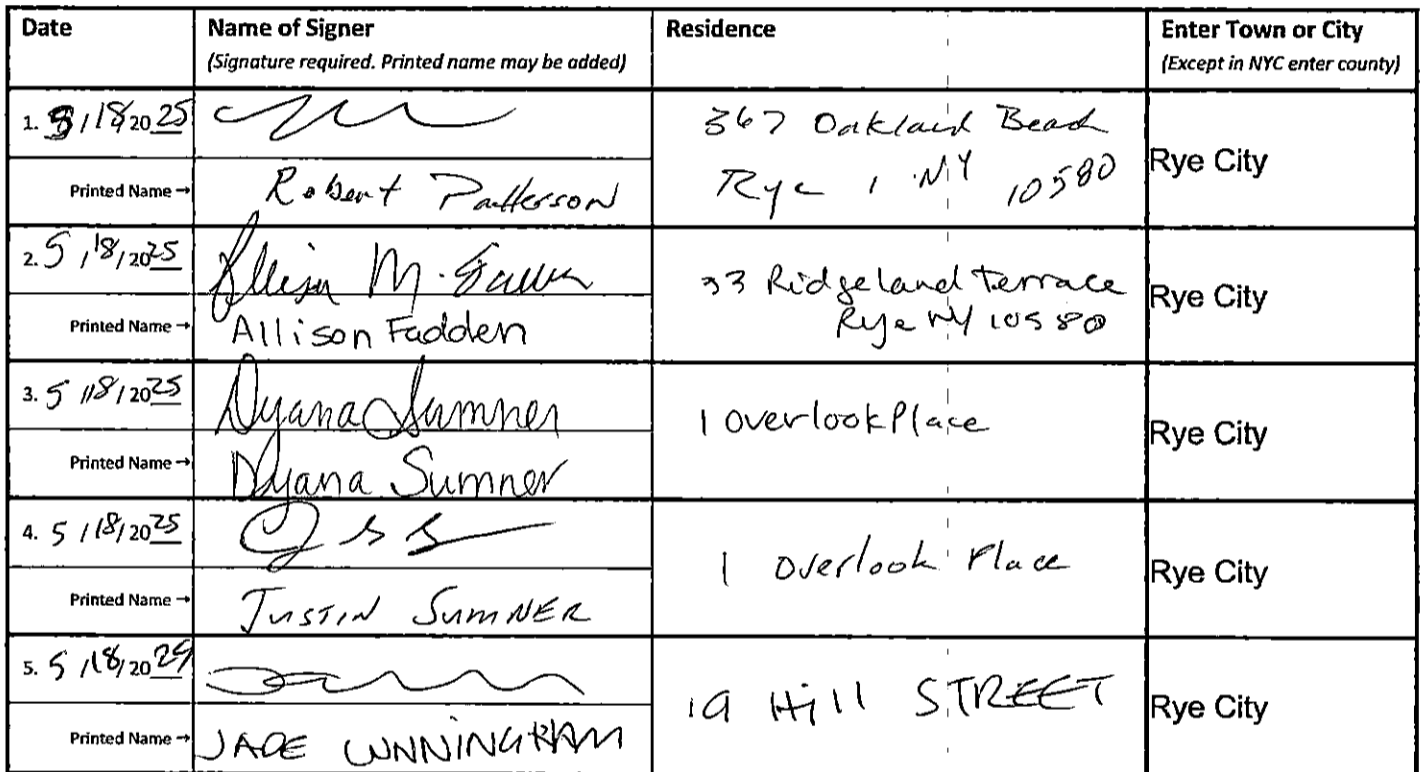 Date Name of Signer Residence Enter Town or City
(Signature required. Printed name may be added) (Except in NYC enter county)
1. 5/18/2025 367 Oakland Beach
Rye, NY 10580 Rye City
Printed Name → Robert Patterson
2. 5/18/2025 Allison M. Fadden 33 Ridgeland Terrace
Rye NY 10580 Rye City
Printed Name → Allison Fadden
3. 5/18/2025 Dyana Sumner 1 Overlook Place Rye City
Printed Name → Dyana Sumner
4. 5/18/2025 1 Overlook Place Rye City
Printed Name → JUSTIN SUMNER
5. 5/18/20 Hill STREET Rye City
Printed Name → JADE CUNNINGHAM